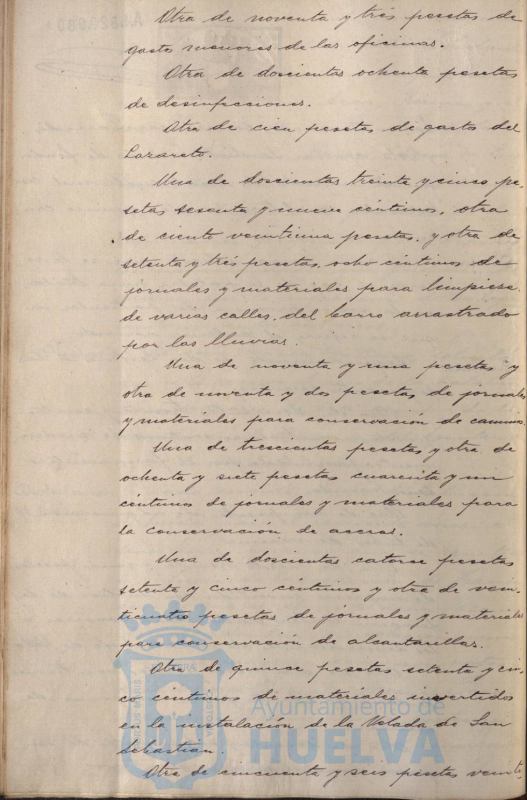 Otra de noventa y tres pesetas de
gastos menores de las oficinas.
Otra de doscientas ochenta pesetas
de desinfecciones.
Otra de cien pesetas de gastos del
Lazareto.
Una de doscientas treinta y cinco pe-
setas sesenta y nueve céntimos, otra
de ciento veintiuna pesetas, y otra de
setenta y tres pesetas, ocho céntimos de
jornales y materiales para limpieza
de varias calles, del barro arrastrado
por las lluvias.
Una de noventa y una pesetas y
otra de noventa y dos pesetas de jornales
y materiales para conservación de caminos.
Una de trescientas pesetas y otra de
ochenta y siete pesetas cuarenta y un
céntimos de jornales y materiales para
la conservación de aceras.
Una de doscientas catorce pesetas
setenta y cinco céntimos y otra de vein-
ticuatro pesetas de jornales y materiales
para conservación de alcantarillas.
Otra de quince pesetas setenta y cin-
co céntimos de materiales invertidos
en la instalación de la Velada de San
Sebastian.
Otra de cincuenta y seis pesetas veinte
Ayuntamiento de
HUELVA